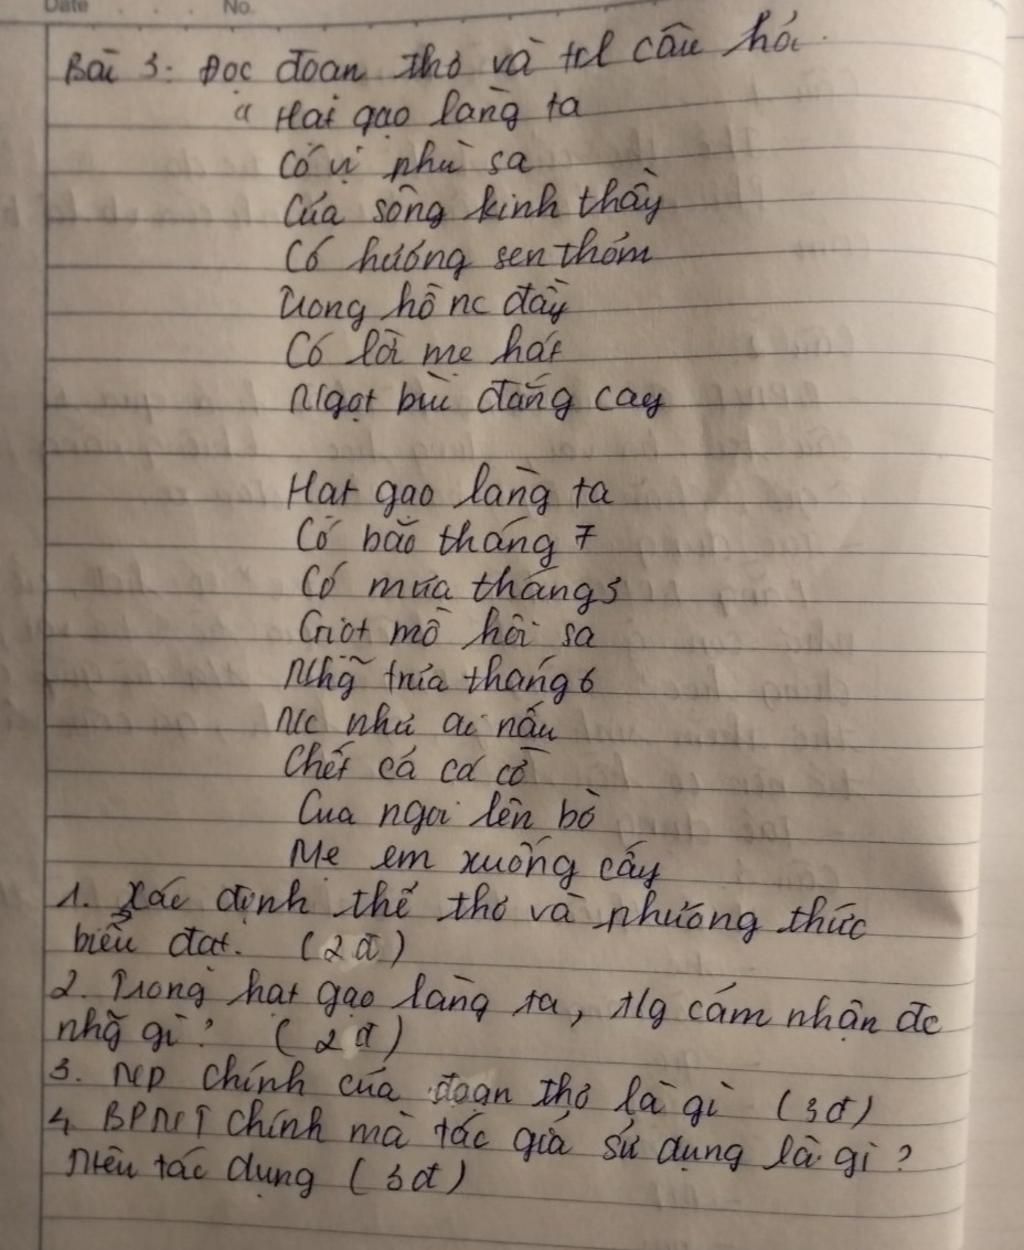 Date No.
Bài 3: Đọc đoạn thơ và tcl câu hỏi.
" Hạt gạo làng ta
Có vị phù sa
Của sông kinh thầy
Có hương sen thơm
Trong hồ nc đầy
Có lời mẹ hát
Ngọt bùi đắng cay
Hạt gạo làng ta
Có bão tháng 7
Có mưa tháng 3
Giọt mồ hôi sa
Nhg̃ trưa tháng 6
Nc như ai nấu
Chết cả cá cờ
Cua ngoi lên bờ
Mẹ em xuống cấy
1. Xác định thể thơ và phương thức
biểu đạt. (2đ)
2. Trong hạt gạo làng ta, t/g cảm nhận đc
nhg̃ gì? (2đ)
3. ND chính của đoạn thơ là gì (3đ)
4 BPNT chính mà tác giả sử dụng là gì?
Nêu tác dụng (3đ)